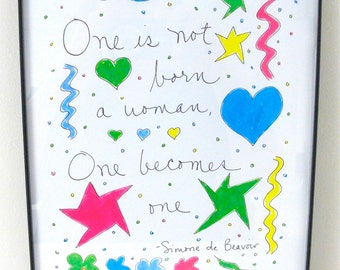 One is not
born
a woman,
One becomes
one
-Simone de Beavoir